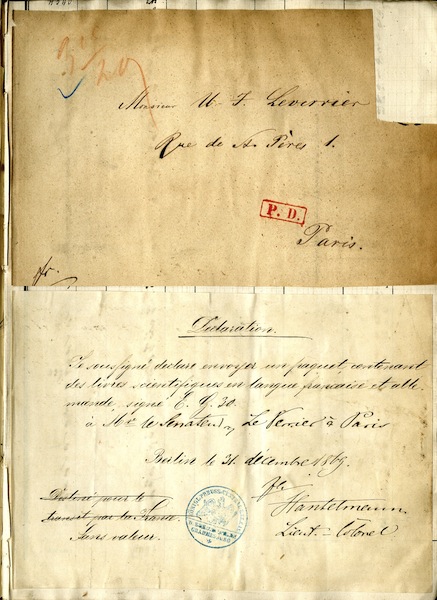 Monsieur U. J. Leverrier
Rue de St. Pères 1.
P. D.
Paris.
Déclaration.
Je soussigné declare envoyer un paquet, contenant
des livres scientifiques en langue française et alle
mande, signé E. G. 30.
à Mr. le Senateur Le Verrier à Paris
Berlin le 31. décembre 1869.
Hantelmann.
Lieut-Colonel
Destiné pour le
transit par la France.
Sans valeur.